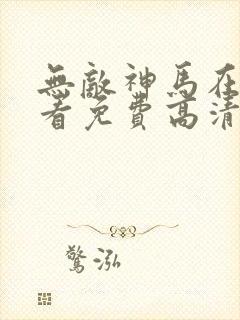 無敵神馬在
看免費高清
驚泓